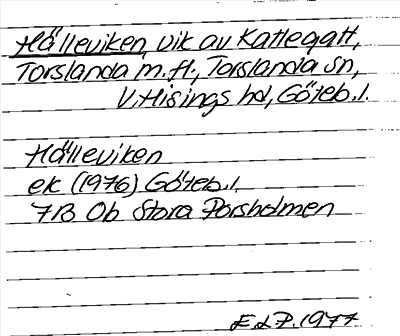 Hälleviken, vik av Kattegatt,
Torslanda m. fl., Torslanda sn,
V. Hisings hd, Göteb. l.
Hälleviken
ek (1976) Göteb. l.
7B 0b Stora Porsholmen
E d P. 1977